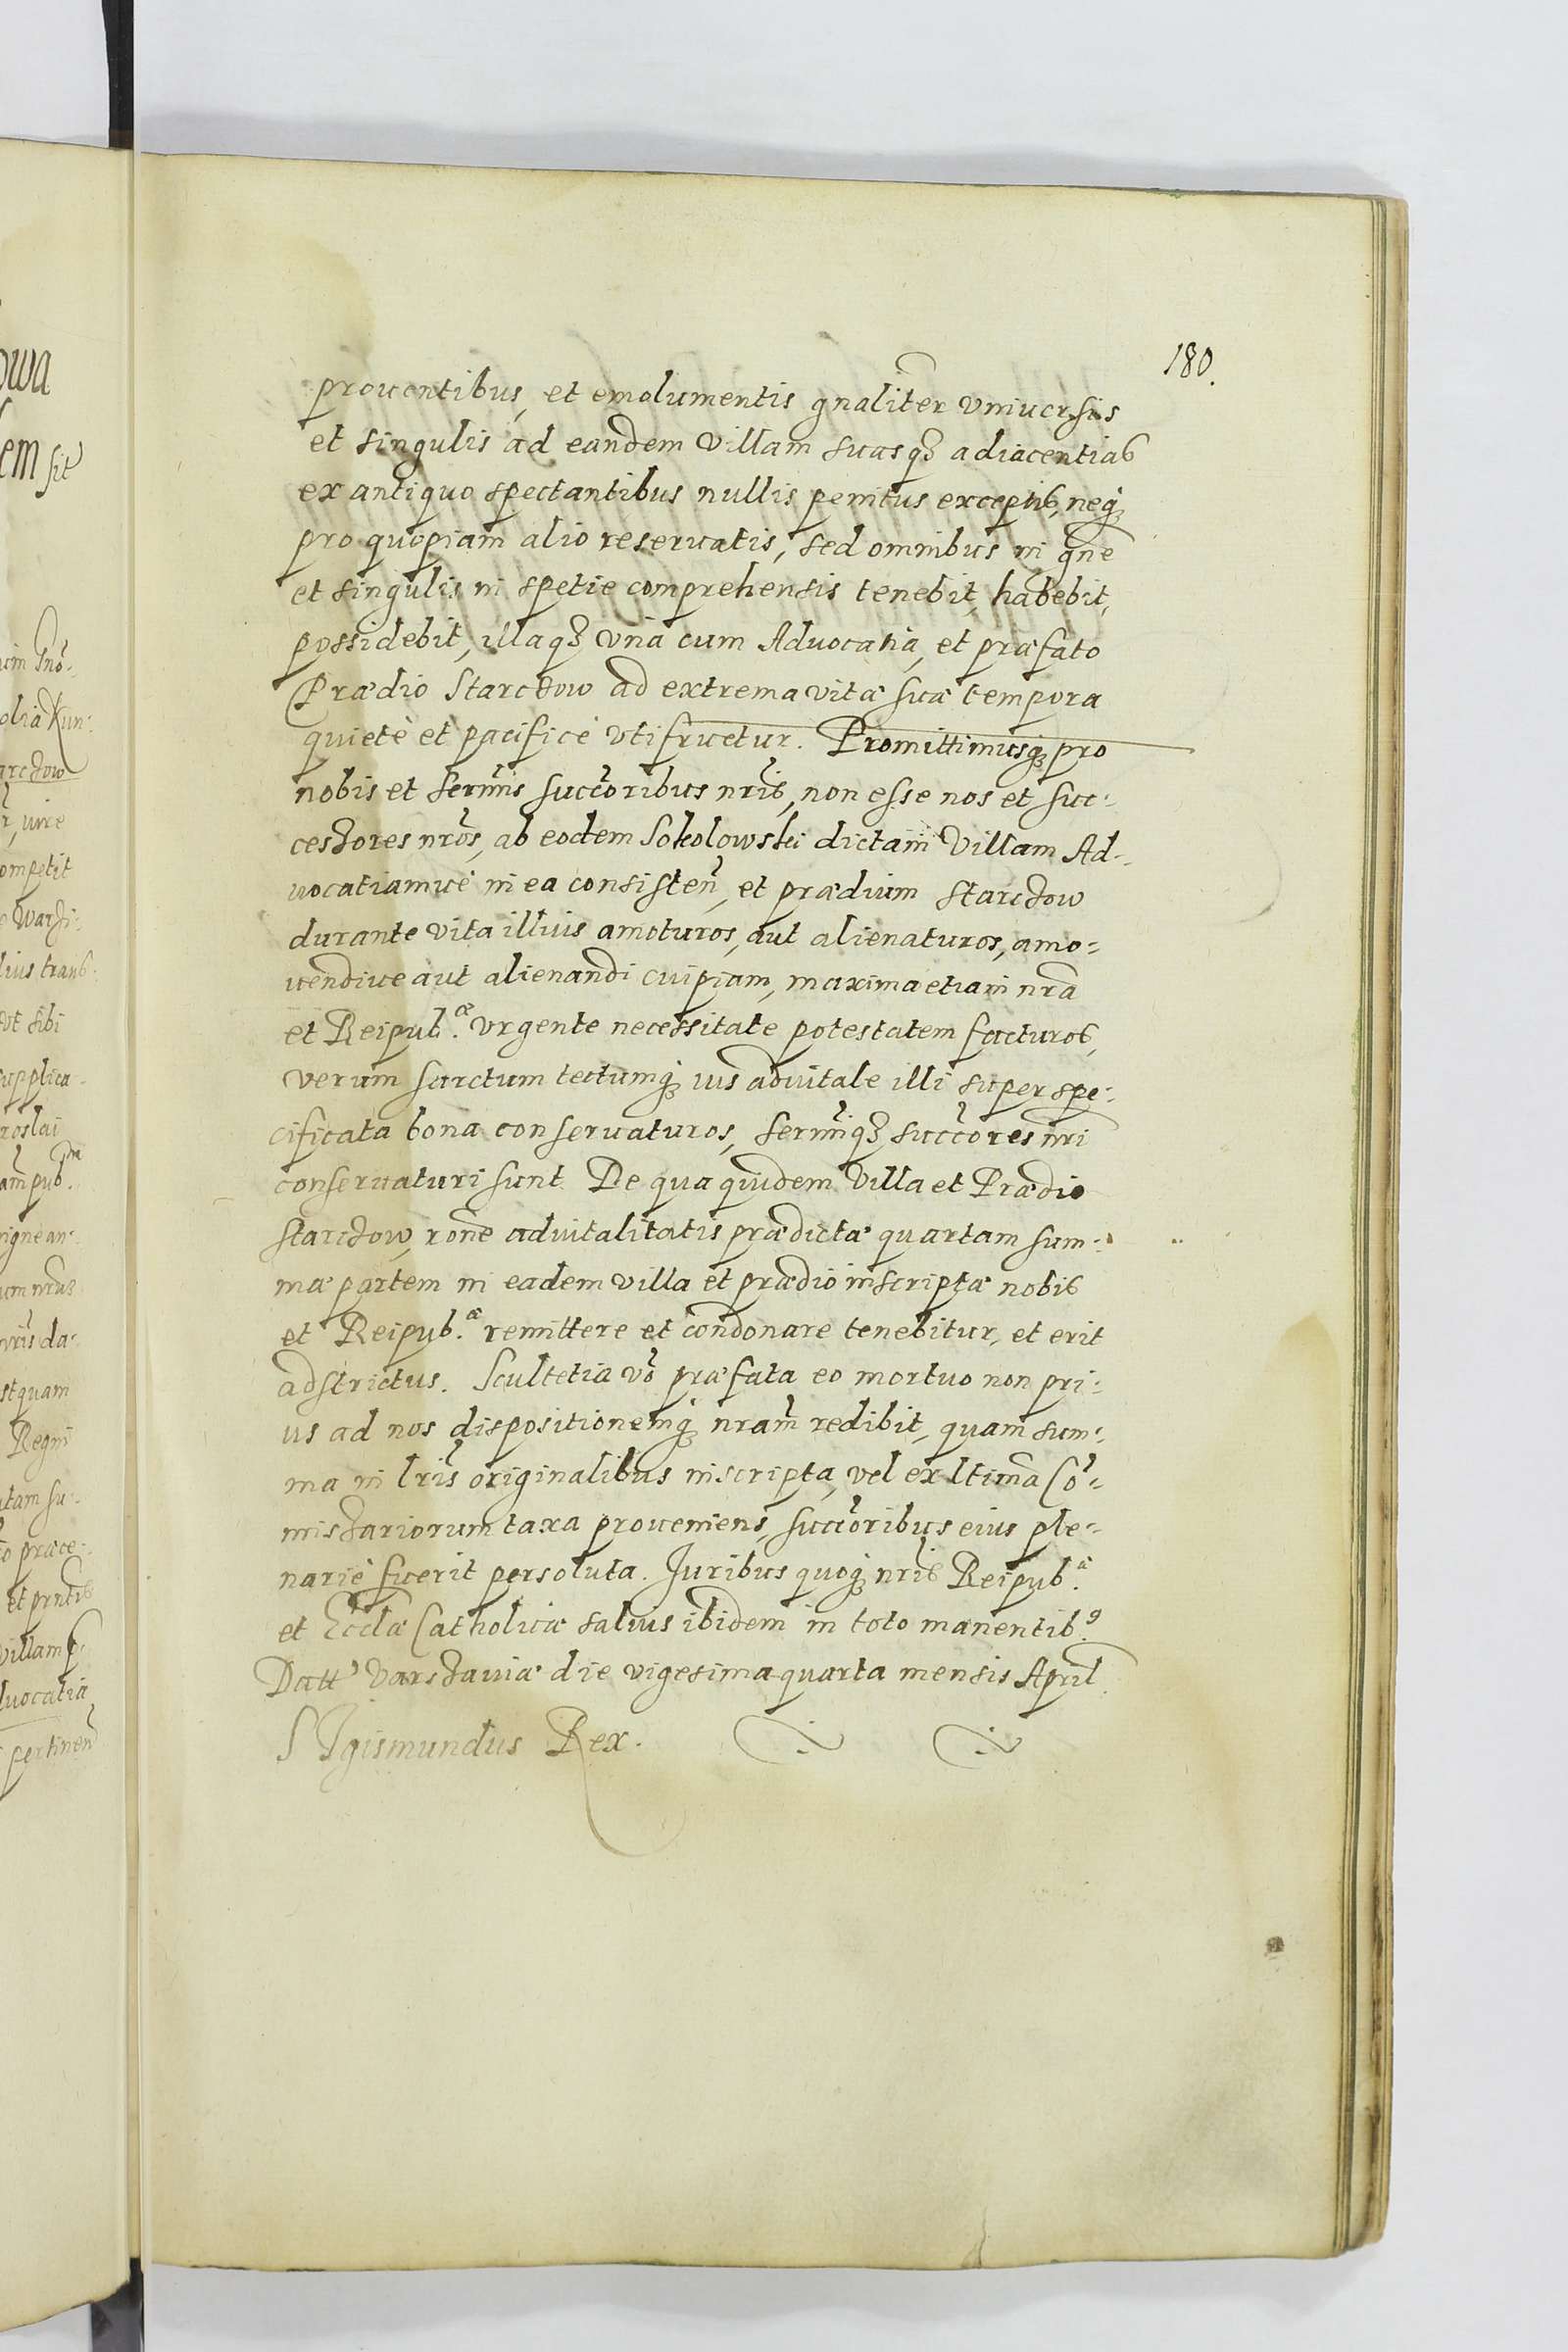 180.
prouentibus, et emolumentis gnaliter vniuersis
et singulis ad eandem villam suasq3 adiacentias
ex antiquo spectantibus nullis penitus exceptis, neq3
pro quopiam alio reseruatis, sed omnibus in gne
et singulis in spetie comprehensis tenebit, habebit,
possidebit, illaq3 vna cum Aduocatia, et præfato
Prædio Starczow ad extrema vitæ suæ tempora
quietè et pacificè vtifruetur. Promittimusq3 pro
nobis et sermis succoribus nris, non esse nos et suc-
cessores nros, ab eodem Sokolowski dictam Villam Ad-
uocatiamue in ea consisten, et prædium Starczow
durante vita illius amoturos, aut alienaturos, amo-
uendiue aut alienandi cuipiam, maxima etiam nra
et Reipub.æ vrgente necessitate potestatem facturos,
verum sarctum tectumq3 ius aduitale illi super spe-
cificata bona conseruaturos, sermiq3 succores nri
conseruaturi sunt. De qua quidem Villa et Prædio
Starczow, rone aduitalitatis prædictæ quartam sum-
mæ partem in eadem villa et prædio inscriptæ nobis
et Reipub.æ remittere et condonare tenebitur, et erit
adstrictus. Scultetia vo præfata eo mortuo non pri-
us ad nos dispositionemq3 nram redibit, quam sum-
ma in lris originalibus inscripta, vel ex ltima Co-
missariorum taxa proueniens, succoribus eius ple-
nariè fuerit persoluta. Juribus quoq3 nris Reipub.æ
et Ecclæ Catholicæ saluis ibidem in toto manentib9.
Datt' Varsauiæ die vigesima quarta mensis April
SIgismundus Rex.